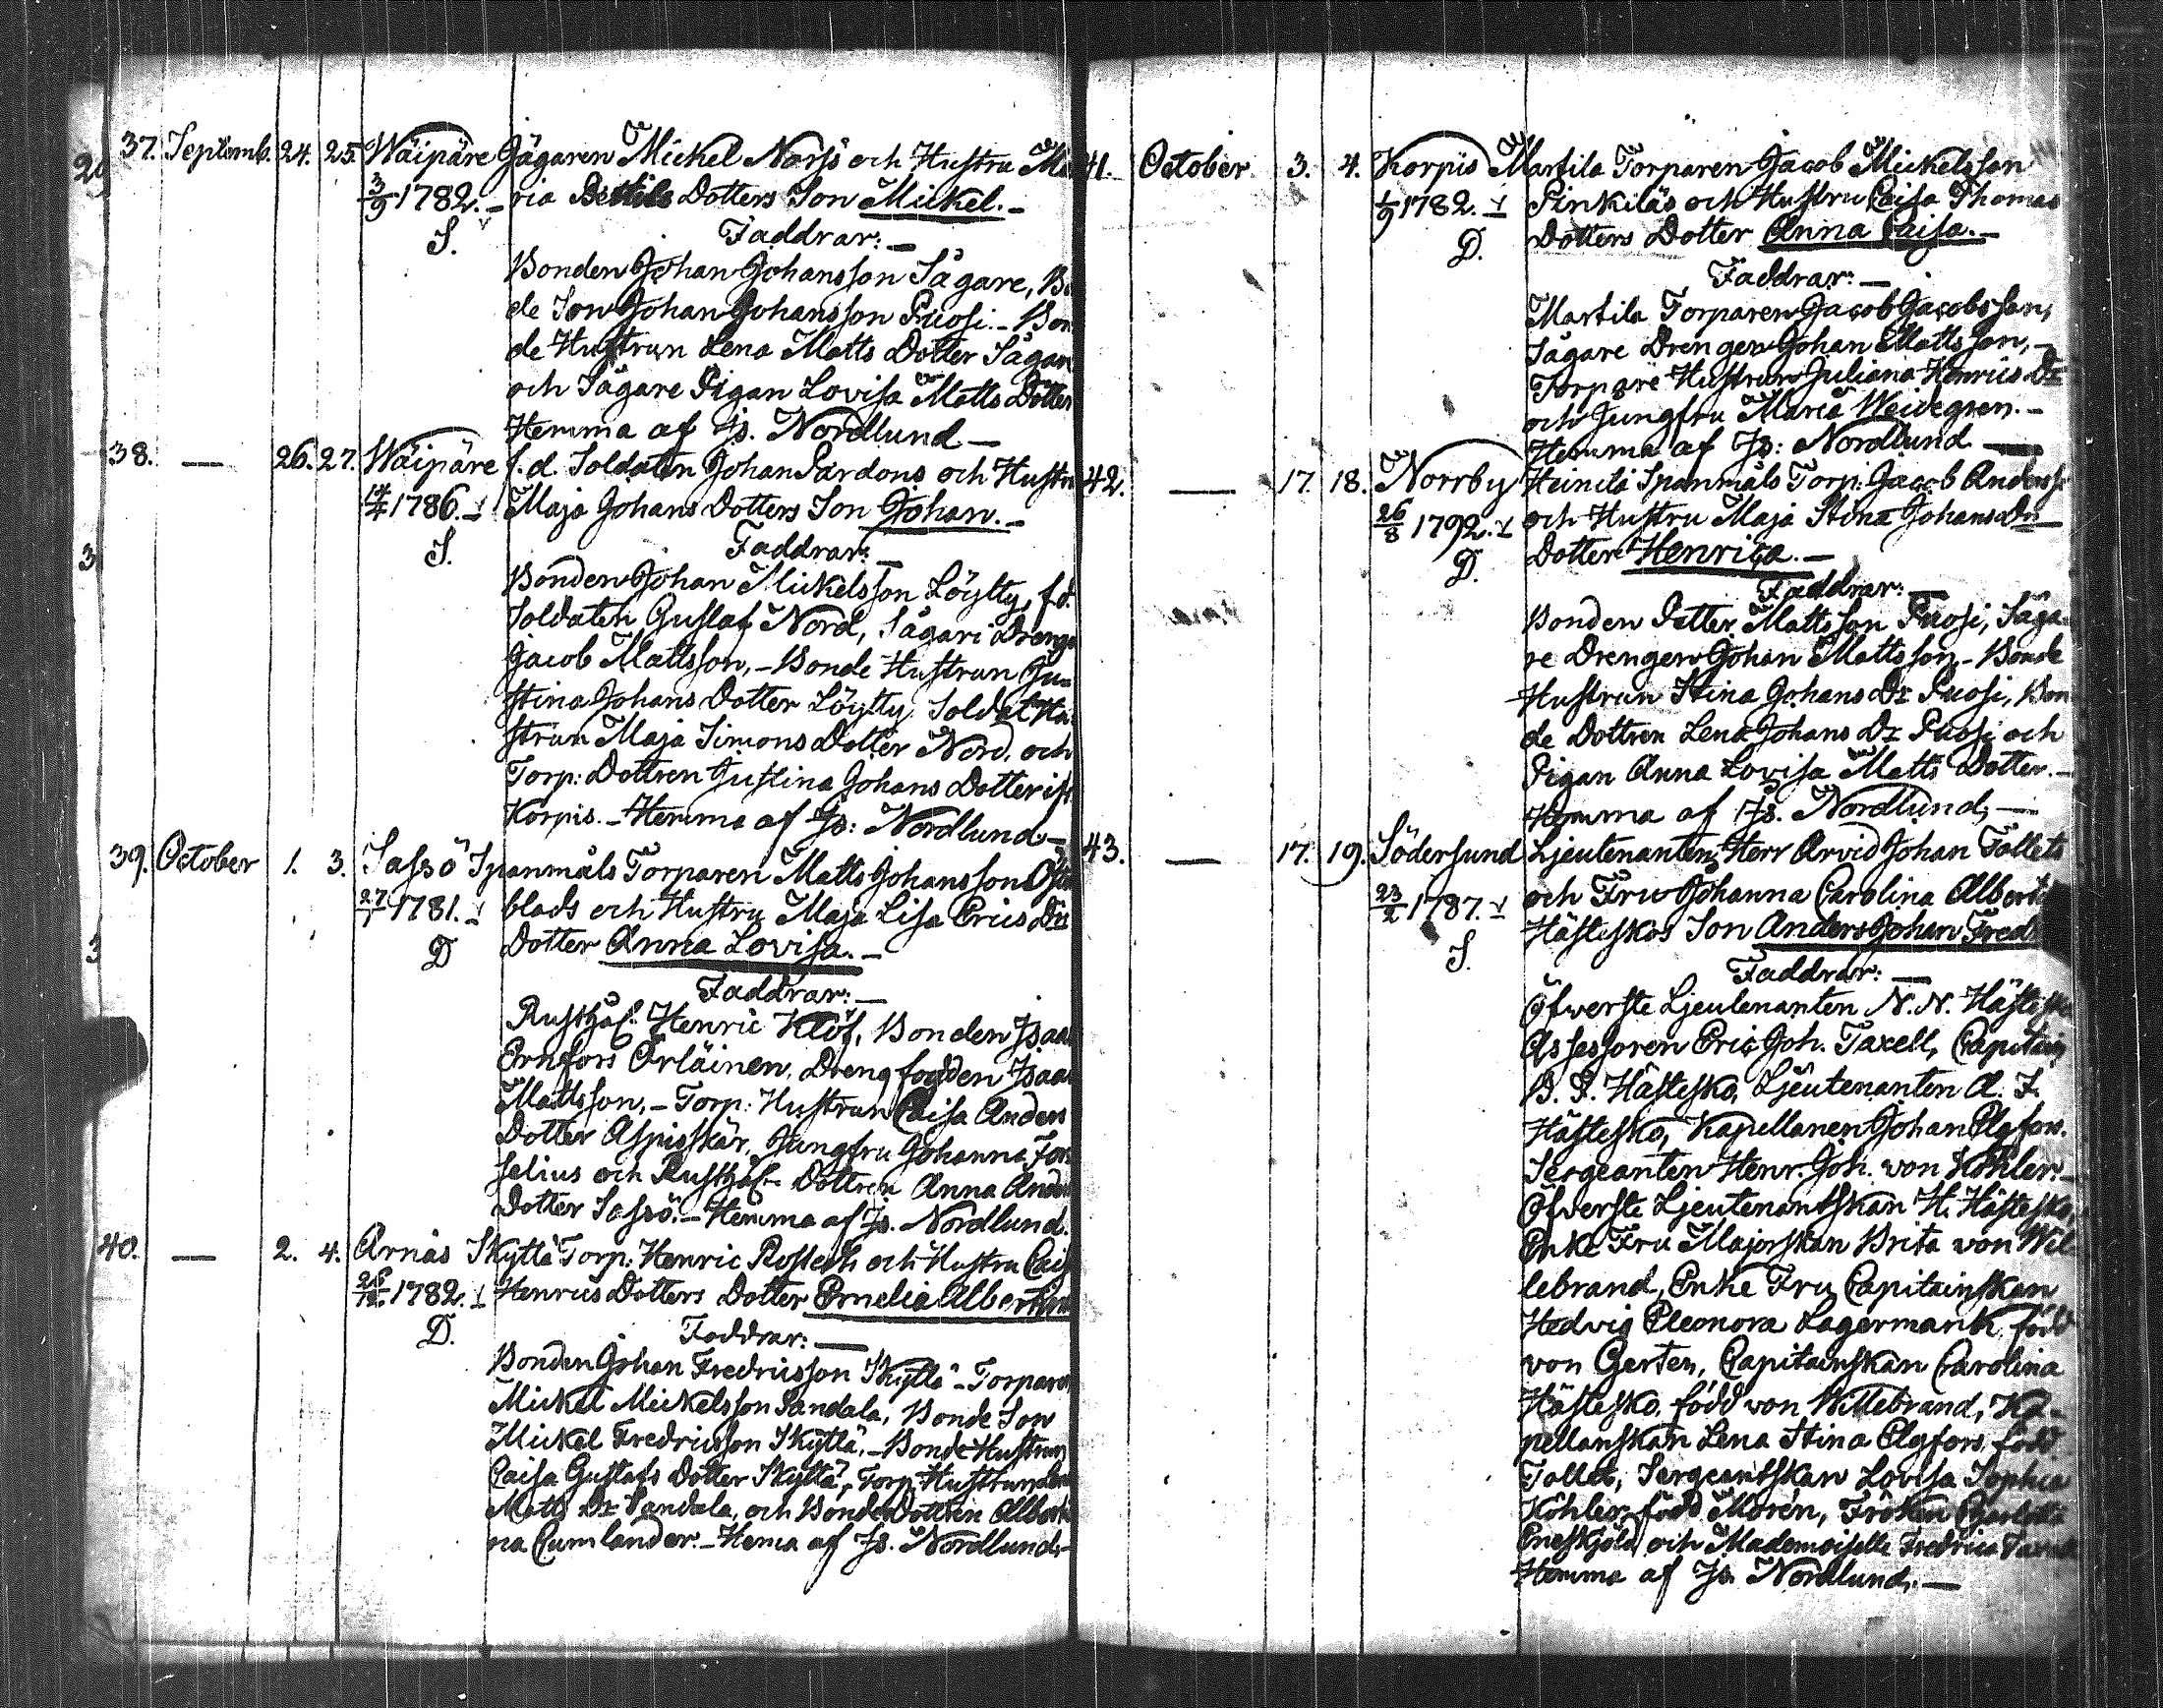 37. Septemb. 24. 25. Wäipäre Jägaren Mickel Norss och Hustru Ma
3/9 1782. ria Bertils Dotters Son Mickel.
S. Faddrar:
Bonden Johan Johansson Sägare, Bo
de Son Johan Johansson Puosi. Bon
de Hustrun Lena Matts Dotter Sägar
och Sägare Pigan Lovisa Matts Dotter
Hemma af Js. Nordlund.
38. — 26. 27. Wäipäre f. d. Soldaten Johan Pardons och Hustru
1786. Maja Johans Dotters Son Johan.
S. Faddrar:
Bonden Johan Mickelsson Löytty, f.d.
Soldaten Gustaf Nord, Sägari Dreng
Jacob Mattsson, Bonde Hustrun Ju-
stina Johans Dotter Löytty Soldat Hu
strun Maja Simons Dotter Nord, och
Torp: Dottren Justina Johans Dotter ifr
Korpis. Hemma af Js: Nordlund.
39. October 1. 3. Sassö Spanmåls Torparen Matts Johansson Öster
27/7 1781. blads och Hustru Maja Lisa Erics Drs
D Dotter Anna Lovisa.
Faddrar:
Rusthål. Henric Klöf, Bonden Isaac
Ernfors Orläinen, Dreng fogden Isaac
Mattsson, Torp: Hustrun Caisa Anders
Dotter Aspisskär, Jungfru Johanna For
selius och Rusthål. Dottren Anna Anders
Dotter Sassö. Hemma af Js. Nordlund.
40. — 2. 4. Arnäs Skyttä Torp: Henric Rostedts och Hustru Cais
26/12 1782. Henrics Dotters Dotter Ernelia Albertina
D. Faddrar:
Bonden Johan Fredricsson Skyttä Torparen
Mickel Mickelsson Sandala, Bonde Son
Mickel Fredricsson Skyttä, Bonde Hustrun
Caisa Gustafs Dotter Skyttä, Torp. Hustrun
Matts Dr Sandala, och Bonde Dottren Alberti
na Cumlander. Hema af Js. Nordlund.
41. October 3. 4. Korpis Martila Torparen Jacob Mickelsson
1/9 1782. Pinkiläs och Hustru Caisa Thomas
D. Dotters Dotter Anna Caisa.
Faddrar:
Martila Torparen Jacob Jacobsson,
Sägare Drengen Johan Mattsson,
Torpare Hustrun Juliana Henrics Dr
och Jungfru Maria Weidegren.
Hemma af Js: Nordlund
42. — 17. 18. Norrby Heinilä Spanmåls Torp: Jacob Anderss
26/8 1792. och Hustru Maja Stina Johans Drs
D. Dotter Henrica.
Faddrar:
Bonden Petter Mattsson Puosi, Säga-
re Drengen Johan Mattsson. Bonde
Hustrun Stina Johans Dr Puosi, Bon
de Dottren Lena Johans Dr Puosi och
Pigan Anna Lovisa Matts Dotter.
Hemma af Js. Nordlund,
43. — 17. 19. Södersund Ljeutenanten Herr Arvid Johan Tollets
23/2 1787. och Fru Johanna Carolina Albert
S. Hästeskos Son Anders Johan Fred
Faddrar:
Öfwerste Ljeutenanten N. N. Hästesko
Assessoren Eric Joh. Taxell, Capitain
B. P. Hästesko, Ljeutenanten A. F.
Hästesko, Kapellanen Johan Elgfors.
Sergeanten Henr. Joh. von Köhler.
Öfverste Ljeutenantskan H. Hästesko,
Enke Fru Majorskan Brita von Wil
lebrand, Enke Fru Capitainskan
Hedvig Eleonora Lagermarck född
von Gerten, Capitainskan Carolina
Hästesko, född von Willebrand, Ka-
pellanskan Lena Stina Elgfors, född
Tollet, Sergeantskan Lovisa Sophia
Köhler, född Morén, Fröken Charlotta
Eneskjöld och Mademoiselle Fredrica Taxell
Hemma af Js. Nordlund.